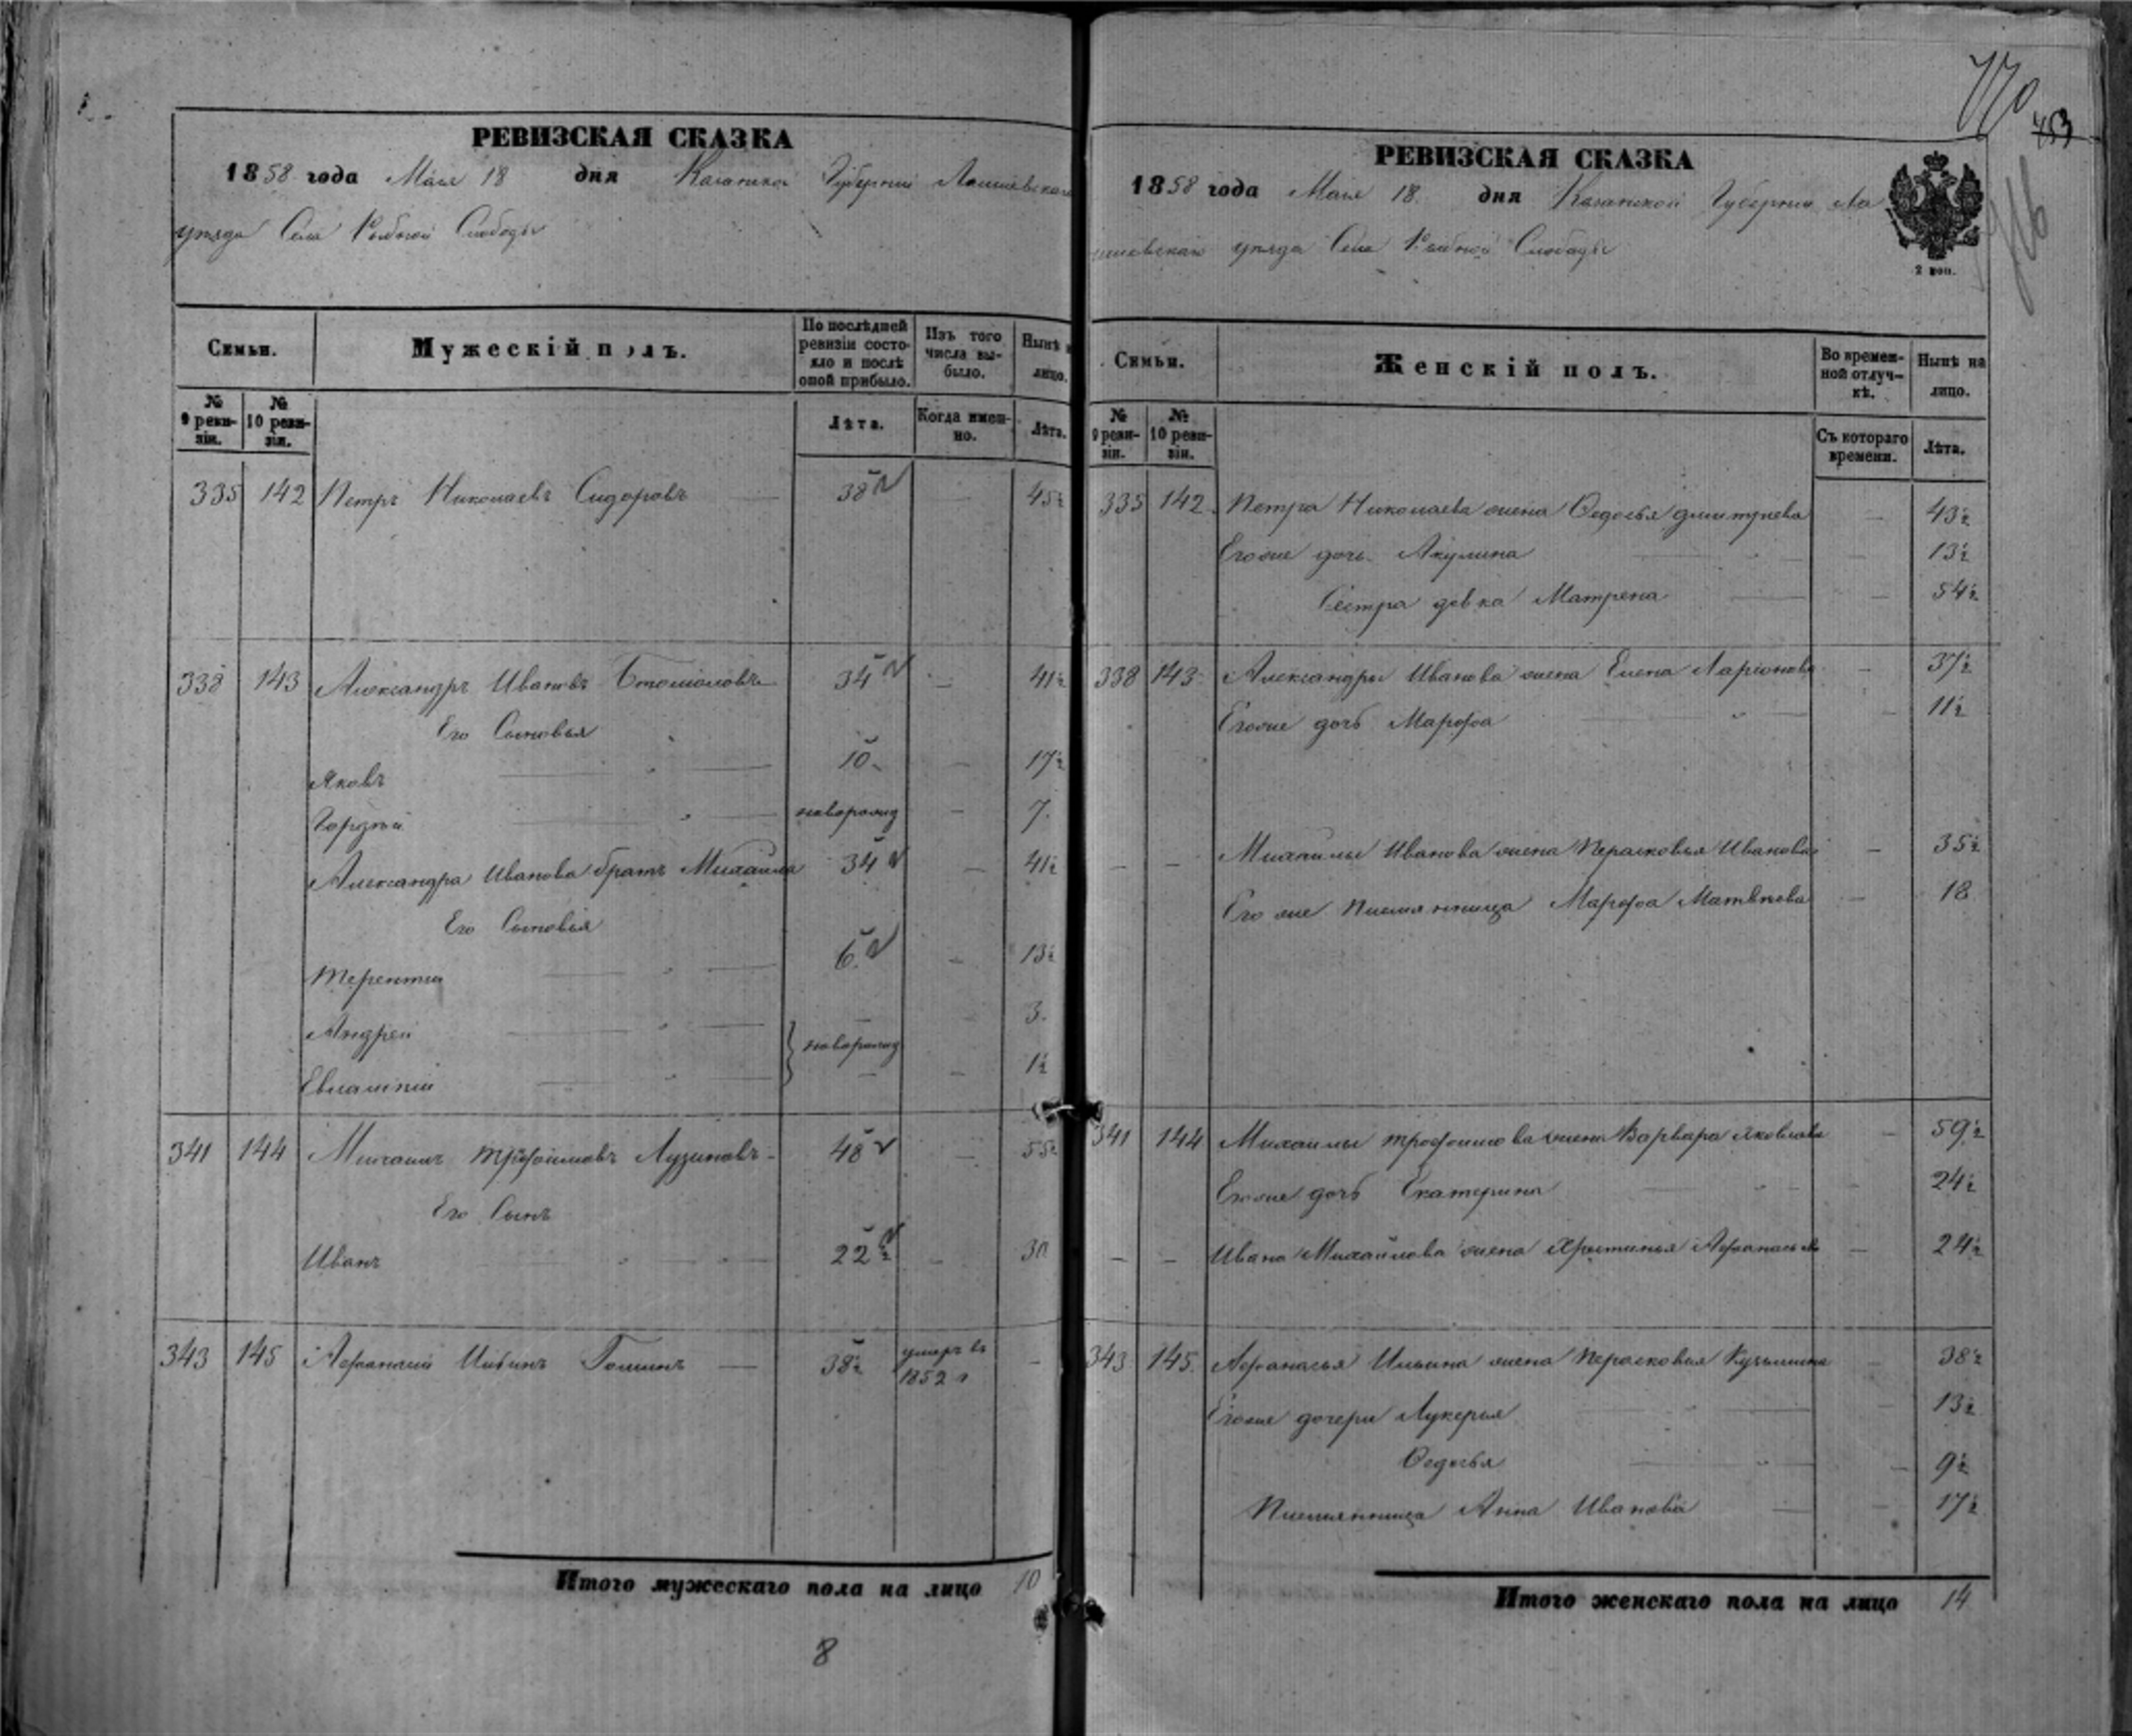 РЕВИЗСКАЯ СКАЗКА
1858 года Маія 18 дня Казанской Губерніи Лаишевскаго
уѣзда Села Рыбной Слободы
Семьи.
Мужескій полъ.
По послѣдней ревизіи состояло и послѣ оной прибыло.
Изъ того числа выбыло.
Нынѣ на лицо.
№ 9 ревизіи.
№ 10 ревизіи.
Лѣта.
Когда именно.
Лѣта.
335 142 Петръ Николаевъ Сидоровъ 38 — 45½
338 143 Александръ Ивановъ 34 — 41½
Его Сыновья
Яковъ 10 — 17½
Гордѣй новорожд — 7.
Александра Иванова братъ Михайла 34 — 41½
Его Сыновья
Терентій 6 — 13½
Андрей 3.
новорожд
Евлампій — 1½
341 144 Михаилъ Трофимовъ Лузиновъ 48 — 55½
Его Сынъ
Иванъ 22½ — 30
343 145 Афанасій Ильинъ 38½ умеръ въ 1852 г —
Итого мужескаго пола на лицо 10
8
770
453
716
РЕВИЗСКАЯ СКАЗКА
1858 года Маія 18 дня Казанской Губерніи Ла
ишевскаго уѣзда Села Рыбной Слободы
2 коп.
Семьи.
Женскій полъ.
Во временной отлучкѣ.
Нынѣ на лицо.
№ 9 ревизіи.
№ 10 ревизіи.
Съ котораго времени.
Лѣта.
335 142 Петра Николаева жена Ѳедосья Дмитріева — 43½
Его же дочь Акулина — 13½
Сестра девка Матрена — 54½
338 143 Александры Иванова жена Елена Ларіонова — 37½
Его же дочь Марфа — 11½
— — Михайлы Иванова жена Перасковья Иванова — 35½
Его же племянница Марфа Матвѣева — 18
341 144 Михаилы Трофимова жена Варвара Яковлева — 59½
Его же дочь Екатерина — 24½
— — Ивана Михайлова жена Христинья Афанасьева — 24½
343 145 Афанасья Ильина жена Перасковья Кузьмина — 38½
Его же дочери Лукерья 13½
Ѳедосья — 9½
Племянница Анна Иванова — 17½
Итого женскаго пола на лицо 14